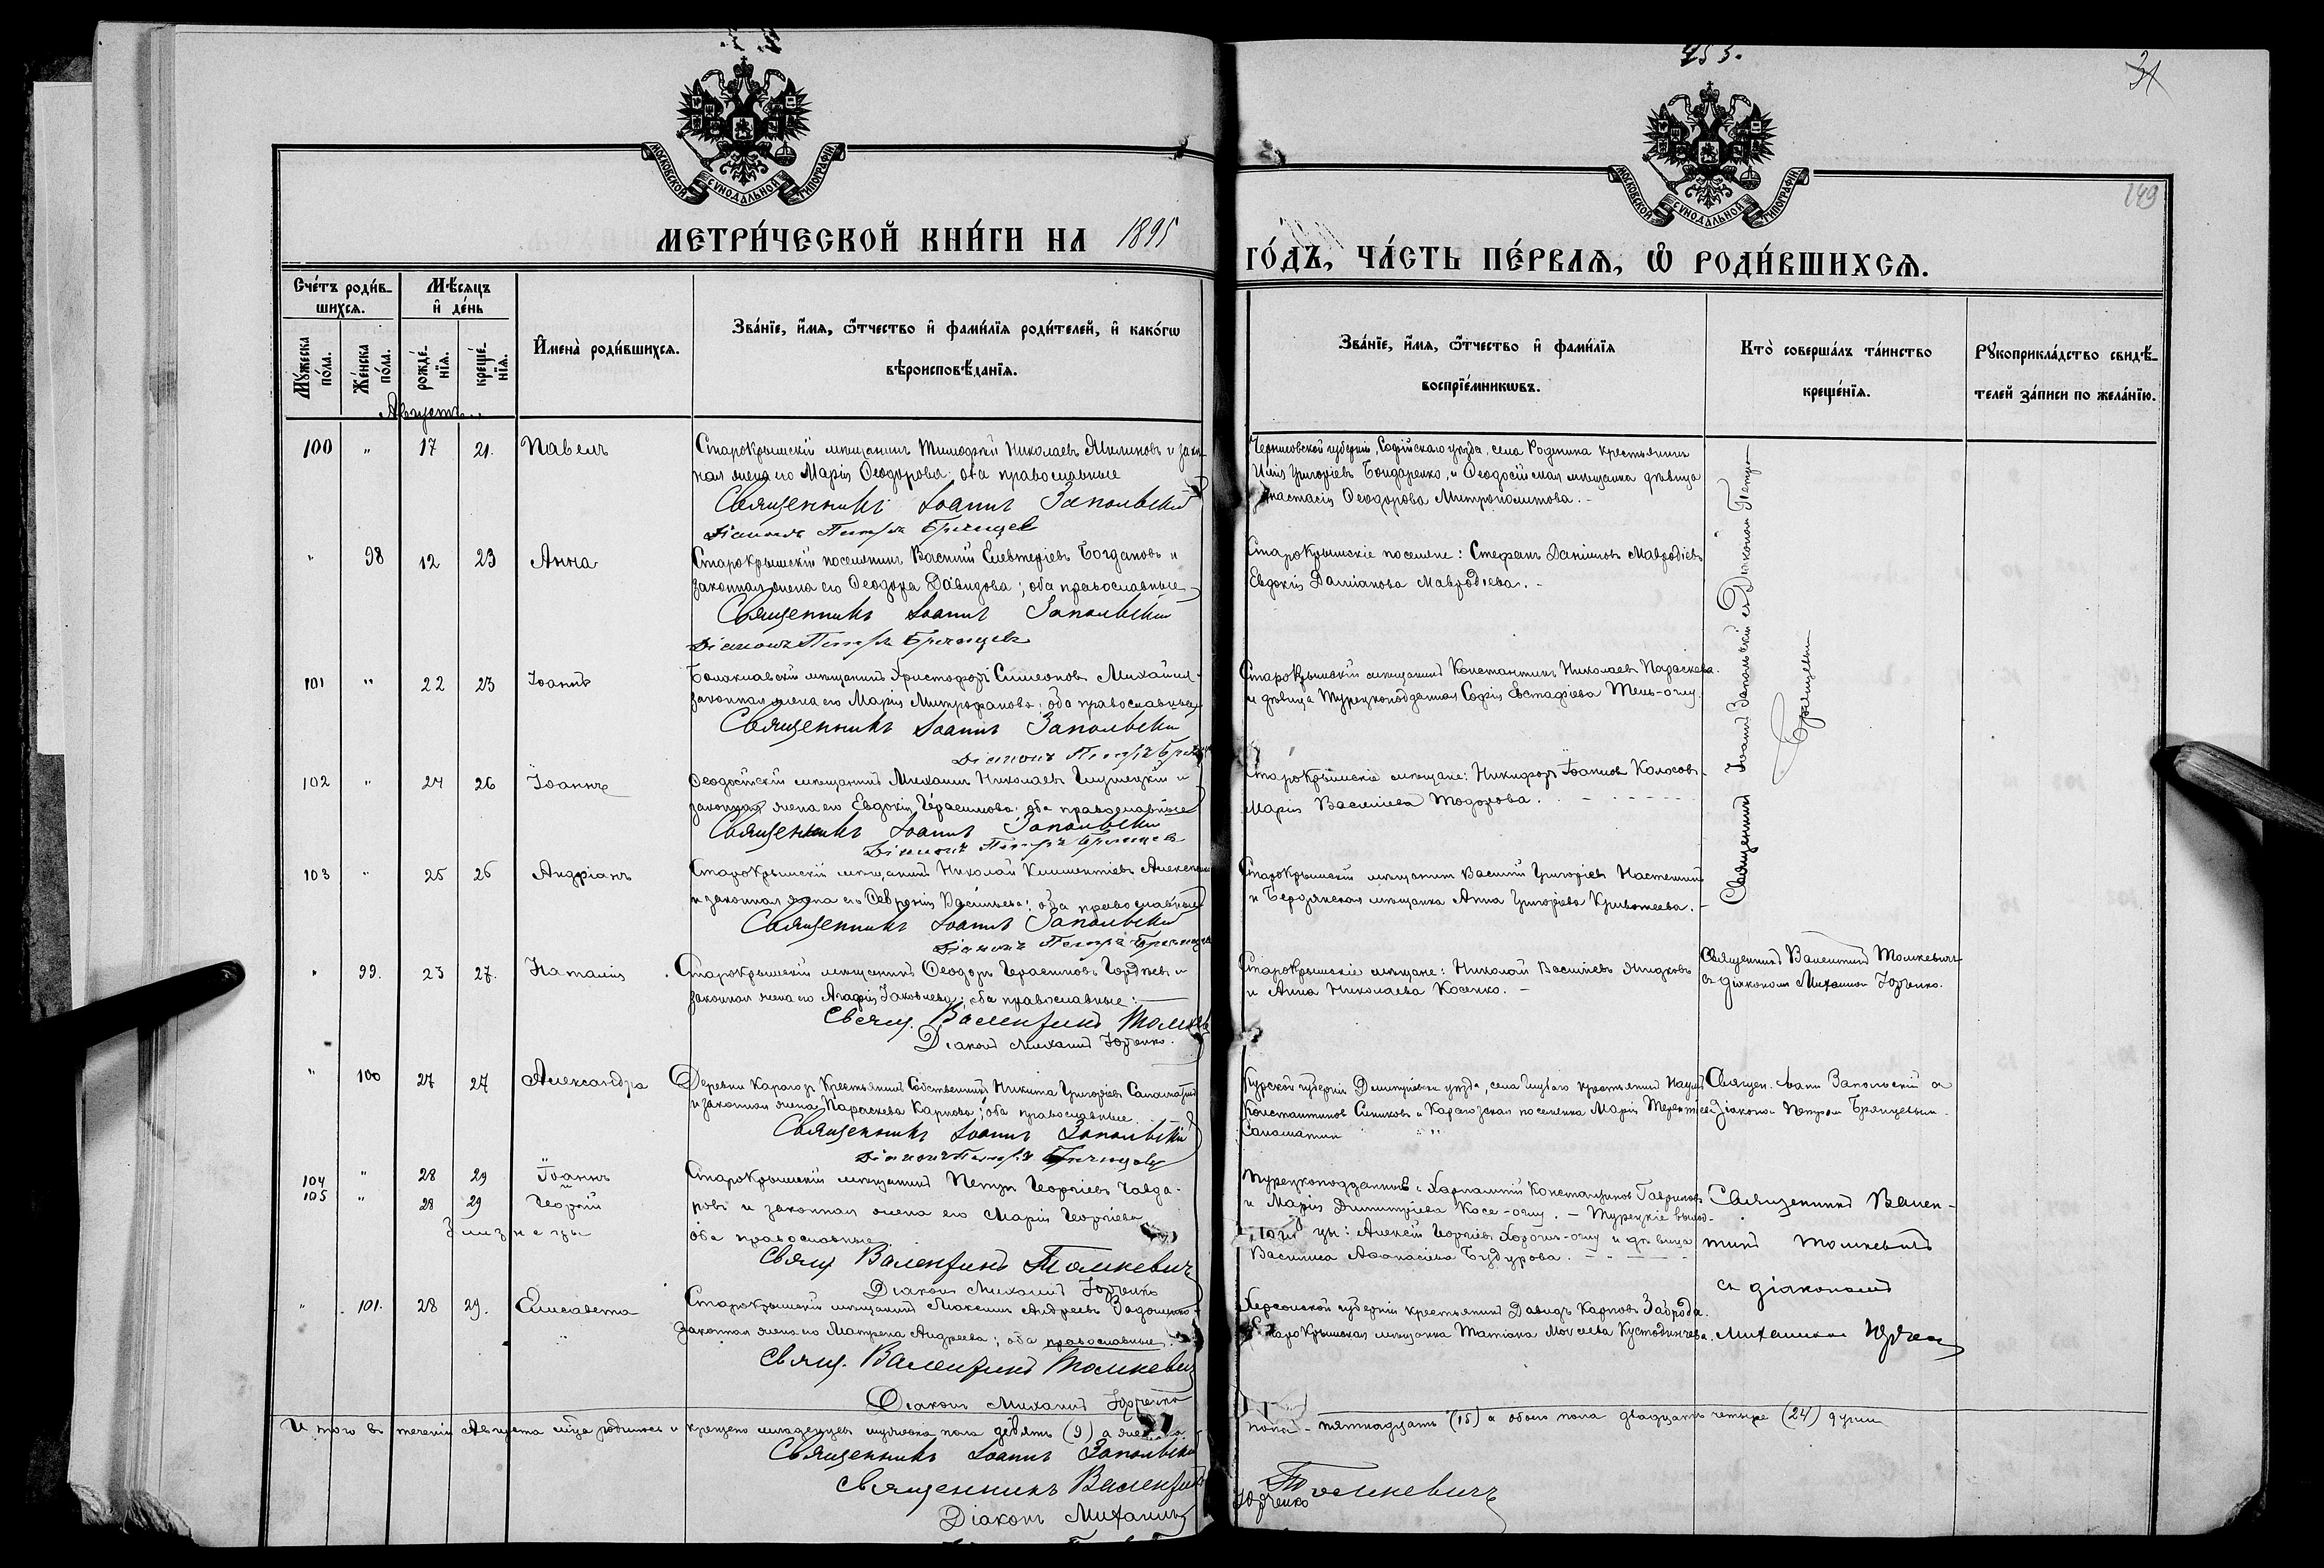 453.
31
149
МОСКОВСКОЙ СѴНОДАЛЬНОЙ ТИПОГРАФІИ
МОСКОВСКОЙ СѴНОДАЛЬНОЙ ТИПОГРАФІИ
МЕТРИ́ЧЕСКОЙ КНИ́ГИ НА 1895
ГО́ДЪ, ЧА́СТЬ ПЕ́РВАѦ, Ѡ РОДИ́ВШИХСѦ.
Сче́тъ роди́в-
шихсѧ.
Мѣ́сѧцъ
и҆ де́нь
Мꙋ́жеска по́ла.
Же́нска по́ла.
рожде́-нїѧ.
креще́-нїѧ.
И҆мена̀ роди́вшихсѧ.
Зва́нїе, и҆́мѧ, ѻ҆́тчество и҆ фами́лїѧ роди́телей, и҆ како́гѡ
вѣроисповѣ́данїѧ.
Зва́нїе, и҆́мѧ, ѻ҆́тчество и҆ фами́лїѧ
воспрїе́мникѡвъ.
Кто̀ соверша́лъ та́инство
креще́нїѧ.
Рꙋкоприкла́дство свидѣ́-
телей за́писи по жела́нїю.
Августъ.
100 " 17 21. Павелъ
Старокрымскій мѣщанинъ Тимофей Николаевъ и закон-
ная жена его Марія Ѳеодорова; оба православные
Священникъ Іоаннъ Запольскій
Діаконъ Петръ Брянцевъ
Черниговской губерніи, уѣзда, села крестьянинъ
Илія Григоріевъ Бондаренко, и Ѳеодосійская мѣщанка дѣвица
Анастасія Ѳеодорова Митрополитова. -
Священникъ Іоаннъ Запольскій съ Діакономъ Петромъ
Брянцевымъ
" 98 12 23 Анна
Старокрымскій поселянинъ Василій Елевтеріевъ Богдановъ и
законная жена его Ѳеодора Давидова; оба православные
Священникъ Іоаннъ Запольскій
Діаконъ Петръ Брянцевъ
Старокрымскіе поселяне: Стефанъ Даміановъ Мавродіевъ
Евдокія Даміанова Мавродіева. -
101 " 22 23 Іоаннъ
Балаклавскій мѣщанинъ Христофоръ Симеоновъ
законная жена его Марія Митрофанова; оба православные
Священникъ Іоаннъ Запольскій
Діаконъ Петръ
Старокрымскій мѣщанинъ Константинъ Николаевъ Параскева
и дѣвица Турецкоподданная Софія Евстафіева
102 " 24 26 Іоаннъ
Ѳеодосійскій мѣщанинъ Михаилъ Николаевъ и
законная жена его Евдокія Герасимова; оба православные
Священникъ Іоаннъ Запольскій
Діаконъ Петръ Брянцевъ
Старокрымскіе мѣщане: Никифоръ Іоанновъ Колосовъ
Марія Василіева Тодорова.
103 " 25 26 Андріанъ
Старокрымскій мѣщанинъ Николай Климентіевъ
и законная жена его Февронія Васильева; оба православные
Священникъ Іоаннъ Запольскій
Діаконъ Петръ
Старокрымскій мѣщанинъ Василій Григоріевъ
и Бердянская мѣщанка Анна Григоріева
" 99. 23 27. Наталія
Старокрымскій мѣщанинъ Ѳеодоръ Герасимовъ Гордѣевъ и
законная жена его Агафія Іаковлева; оба православные:
Свящ. Валентинъ
Діаконъ Михаилъ Юрченко.
Старокрымскіе мѣщане: Николай Василіевъ
и Анна Николаева Косенко. -
Священникъ Валентинъ Томкевичъ
съ діакономъ Михаиломъ Юрченко.
" 100 27 27 Александра
Деревни Карагозъ Крестьянинъ Собственникъ Никита Григоріевъ
и законная жена Параскева Карпова; оба православные
Священникъ Іоаннъ Запольскій
Діаконъ Петръ Брянцевъ
Курской губерніи уѣзда, села крестьянинъ Наумъ
Константиновъ и Карагозская поселянка Марія
Священ. Іоаннъ Запольскій съ
Діаконом Петром Брянцевым.
104 " 28 29 Іоаннъ
105 " 28 29 Георгій
Близнецы
Старокрымскій мѣщанинъ Петръ Георгіевъ Чавда-
ровъ и законная жена его Марія Георгіева
оба православные
Свящ Валентинъ Томкевичъ
Діаконъ Михаилъ Юрченко
Турецкоподданные: Харлампій Константиновъ Гавриловъ
и Марія Димитріева Косе-оглу. - Турецкіе выход-
цы: Алексій Георгіевъ и дѣвица
Василиса Аѳанасіева Будурова.
Священникъ Вален-
тинъ Томкевичъ
съ діакономъ
Михаиломъ Юрченко
" 101. 28 29. Елисавета
Старокрымскій мѣщанинъ Максимъ Андреевъ
законная жена его Матрена Андреева; оба православные.
Свящ. Валентинъ Томкевичъ
Діаконъ Михаилъ Юрченко
Херсонской губерніи крестьянинъ Давидъ Карповъ Заброда.
Старокрымская мѣщанка Татіана Моисеева
Итого въ теченіи Августа мѣсяца родилось и крещено младенцевъ мужеска пола девять (9) а женска
пола - пятнадцать (15) а обоего пола двадцать четыре (24) души
Священникъ Іоаннъ Запольскій
Священникъ Валентинъ Томкевичъ
Діаконъ Михаилъ Юрченко